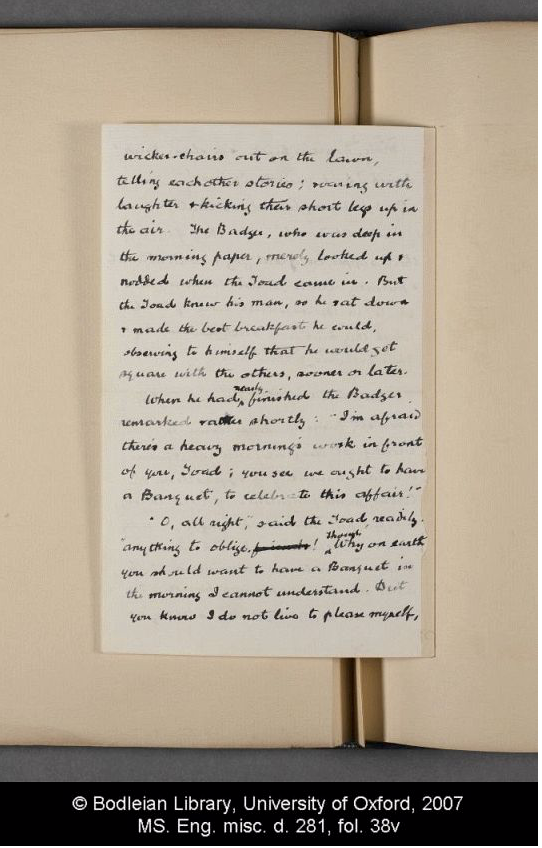 wicker-chairs out on the lawn,
telling each other stories; roaring with
laughter & kicking their short legs up in
the air. The Badger, who was deep in
the morning paper, merely looked up &
nodded when the Toad came in. But
the Toad knew his man, so he sat down
& made the best breakfast he could,
observing to himself that he would get
square with the others, sooner or later.
When he had nearly finished the Badger
remarked rather shortly: "I'm afraid
there's a heavy morning's work in front
of you, Toad; you see we ought to have
a Banquet, to celebrate this affair!"
"O, all right," said the Toad, readily.
"anything to oblige, friends! Though Why on earth
you should want to have a Banquet in
the morning I cannot understand. But
you know I do not live to please myself,
© Bodleian Library, University of Oxford, 2007
MS. Eng. misc. d. 281, fol. 38v